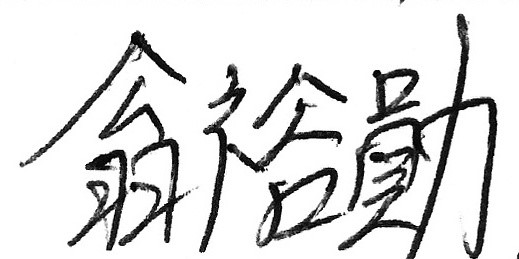 翁裕勛